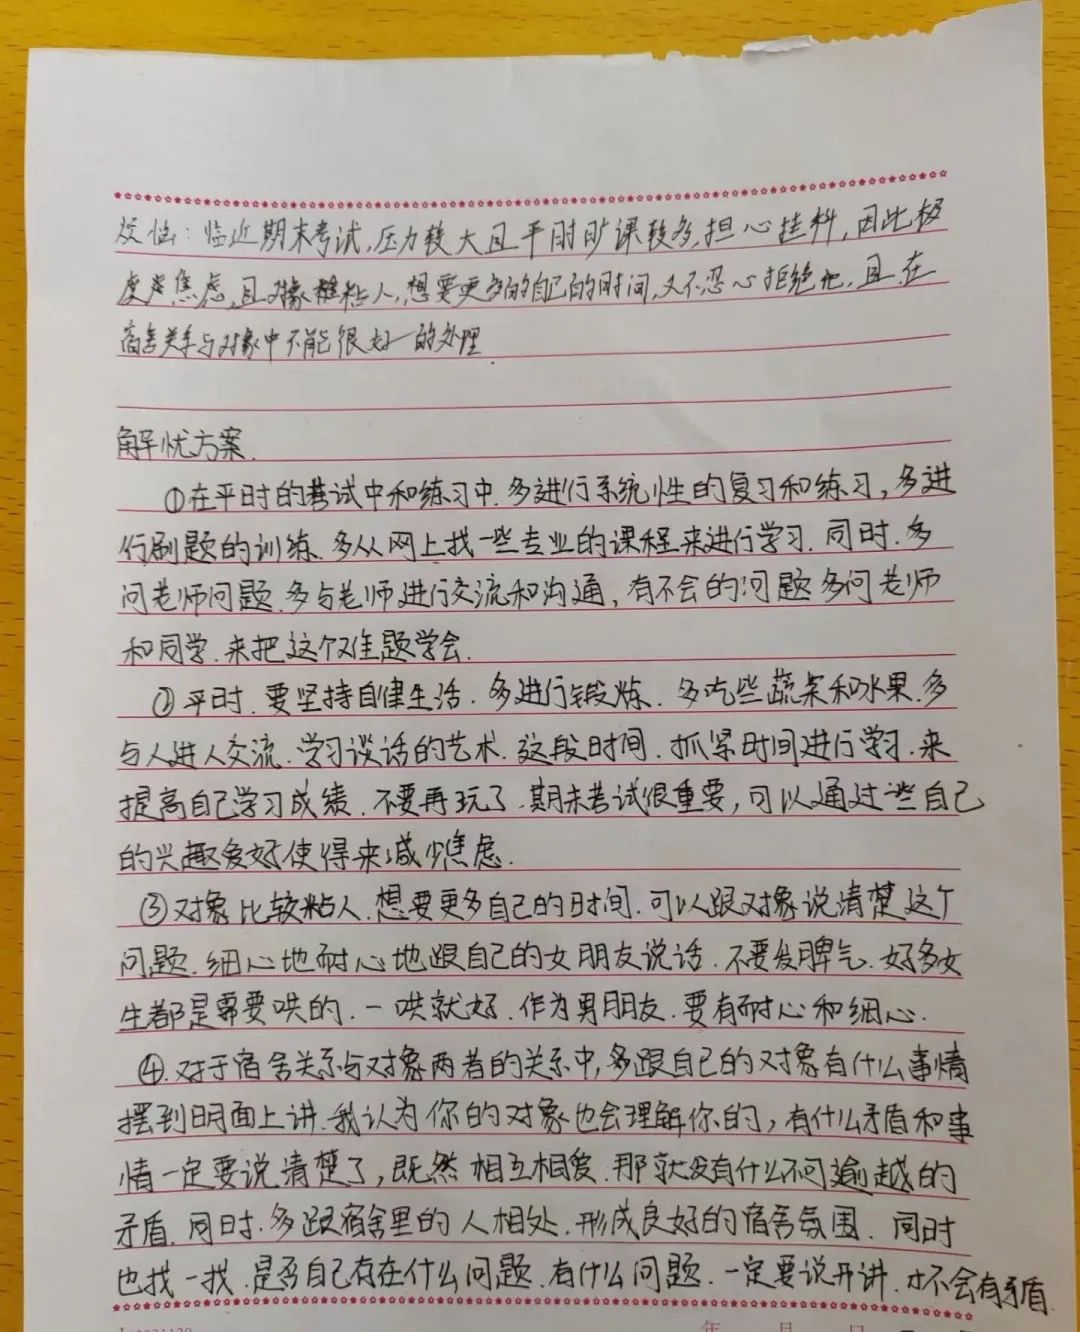 烦恼：临近期末考试,压力较大且平时旷课较多,担心挂科,因此极
度焦虑,且对象粘人,想要更多的自己的时间,又不忍心拒绝他,且在
宿舍关系与对象中不能很好的处理
解忧方案.
①在平时的考试中和练习中.多进行系统性的复习和练习,多进
行刷题的训练、多从网上找一些专业的课程来进行学习.同时.多
问老师问题.多与老师进行交流和沟通,有不会的问题多问老师
和同学.来把这个难题学会.
②平时.要坚持自律生活.多进行锻炼.多吃些蔬菜和水果.多
与人进人交流.学习谈话的艺术.这段时间.抓紧时间进行学习.来
提高自己学习成绩.不要再玩了.期末考试很重要,可以通过些自己
的兴趣爱好使得来减少焦虑.
③对象比较粘人.想要更多自己的时间.可以跟对象说清楚这个
问题.细心地耐心地跟自己的女朋友说话.不要发脾气.好多女
生都是需要哄的.一哄就好.作为男朋友.要有耐心和细心.
④.对于宿舍关系与对象两者的关系中,多跟自己的对象有什么事情
摆到明面上讲.我认为你的对象也会理解你的,有什么矛盾和事
情一定要说清楚了,既然相互相爱.那就没有什么不可逾越的
矛盾.同时.多跟宿舍里的人相处.形成良好的宿舍氛围.同时
也找一找.是否自己存在什么问题.有什么问题.一定要说开讲.才不会有矛盾.
年 月 日